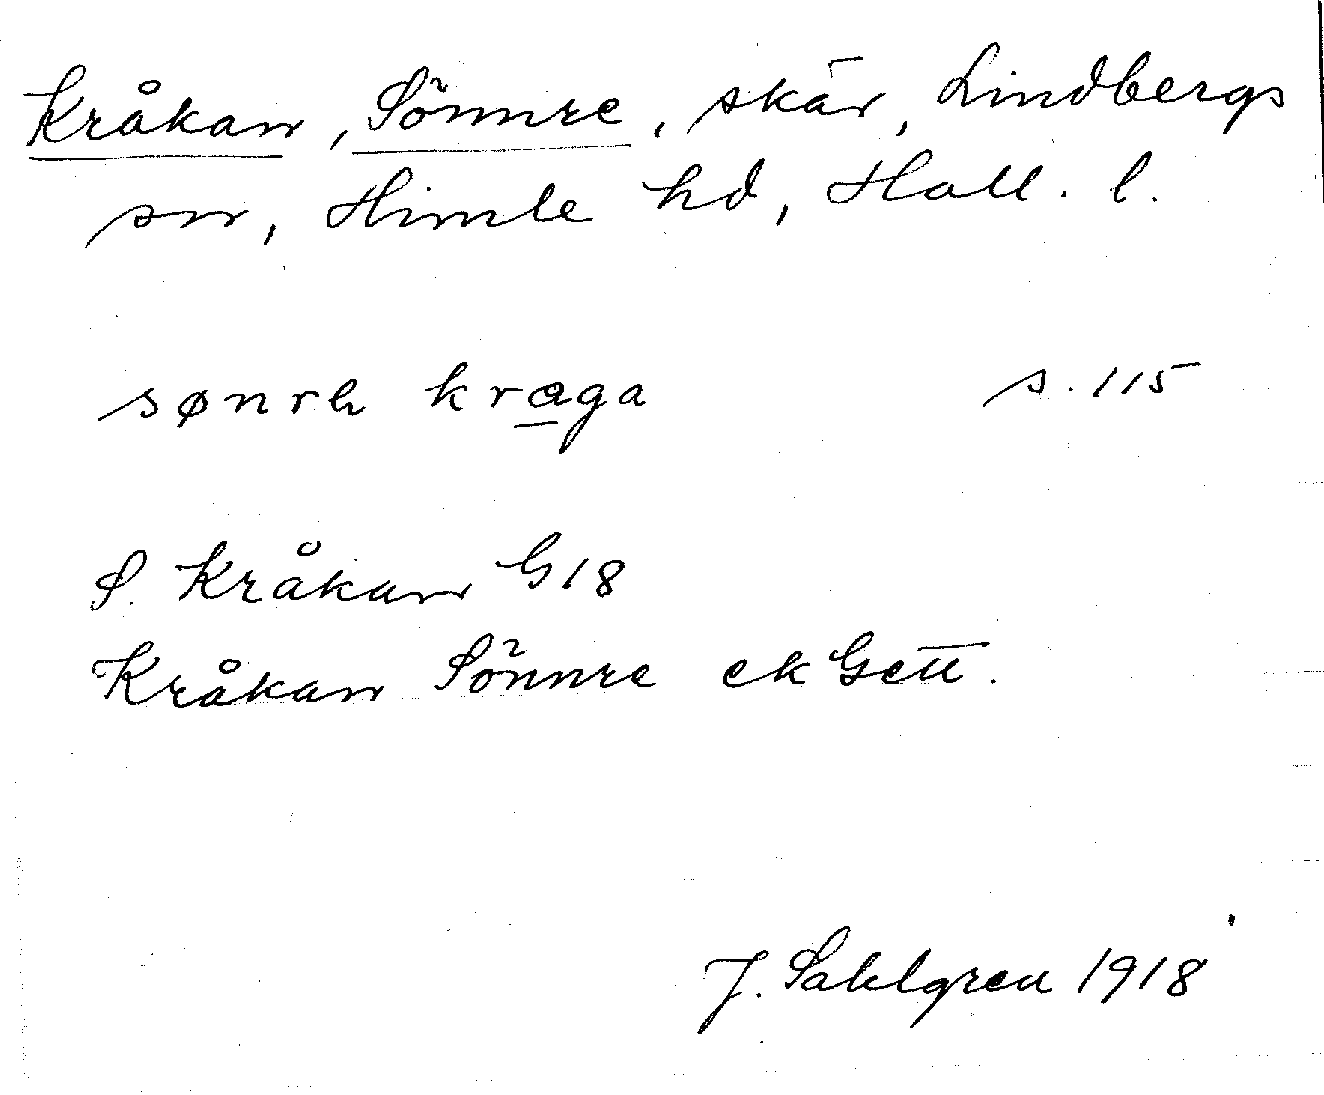 Kråkan, Sönnre, skär, Lindbergs
sn, Himle hd, Hall. l.
sønrh kraga s. 115
S. Kråkan G18
Kråkan Sönnre ek Gett.
J. Sahlgren 1918